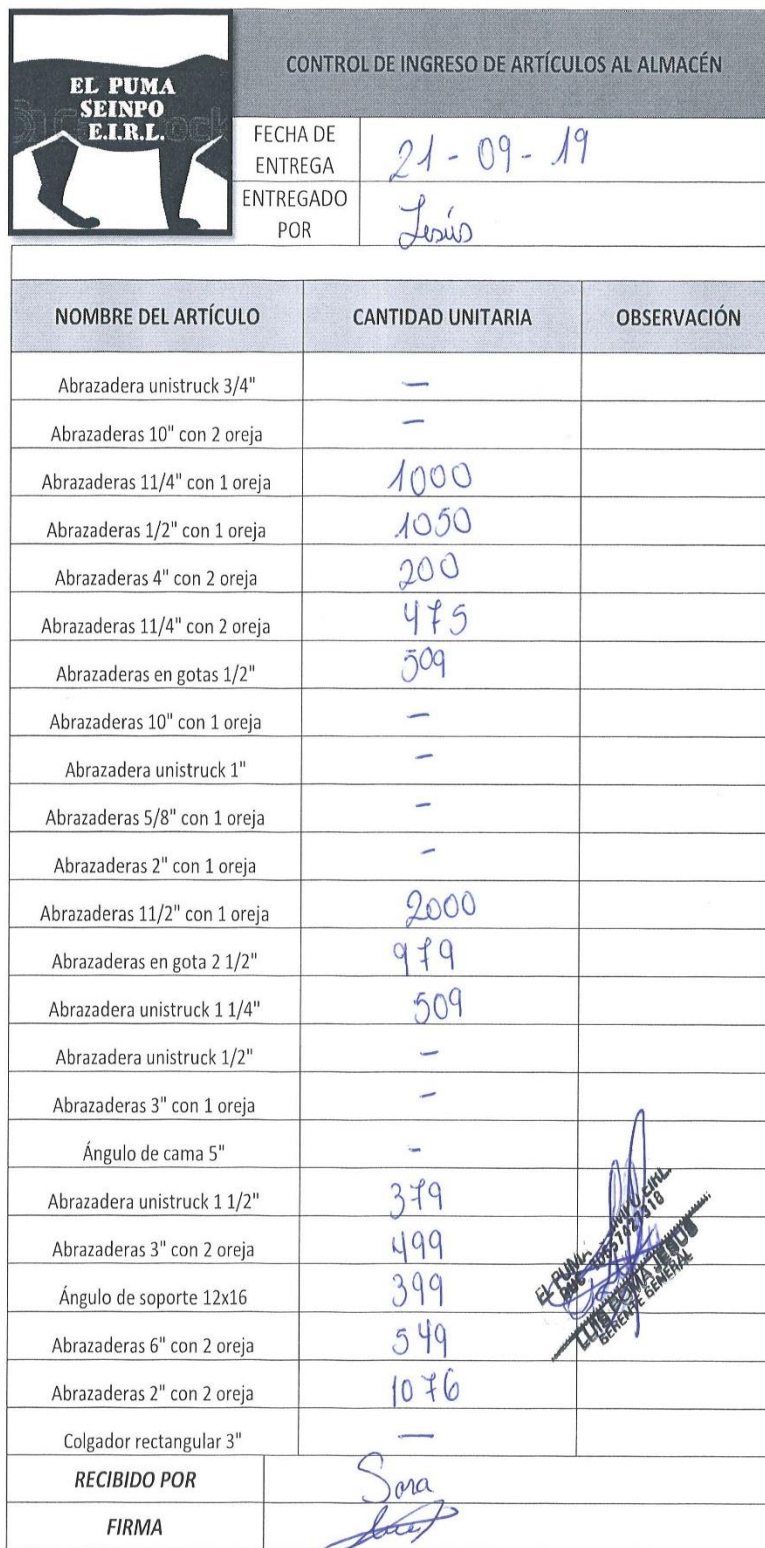 EL PUMA
SEINPO
E.I.R.L.
CONTROL DE INGRESO DE ARTÍCULOS AL ALMACÉN
FECHA DE ENTREGA 21-09-19
ENTREGADO POR Jesús
NOMBRE DEL ARTÍCULO CANTIDAD UNITARIA OBSERVACIÓN
Abrazadera unistruck 3/4" —
Abrazaderas 10" con 2 oreja —
Abrazaderas 11/4" con 1 oreja 1000
Abrazaderas 1/2" con 1 oreja 1050
Abrazaderas 4" con 2 oreja 200
Abrazaderas 11/4" con 2 oreja 475
Abrazaderas en gotas 1/2" 509
Abrazaderas 10" con 1 oreja —
Abrazadera unistruck 1" —
Abrazaderas 5/8" con 1 oreja —
Abrazaderas 2" con 1 oreja —
Abrazaderas 11/2" con 1 oreja 2000
Abrazaderas en gota 2 1/2" 979
Abrazadera unistruck 1 1/4" 509
Abrazadera unistruck 1/2" —
Abrazaderas 3" con 1 oreja —
Ángulo de cama 5" —
Abrazadera unistruck 1 1/2" 379
Abrazaderas 3" con 2 oreja 499
Ángulo de soporte 12x16 399
Abrazaderas 6" con 2 oreja 549
Abrazaderas 2" con 2 oreja 1076
Colgador rectangular 3" —
EL PUMA
LUIS PUMA JESUS
GERENTE GENERAL
RECIBIDO POR Sara
FIRMA